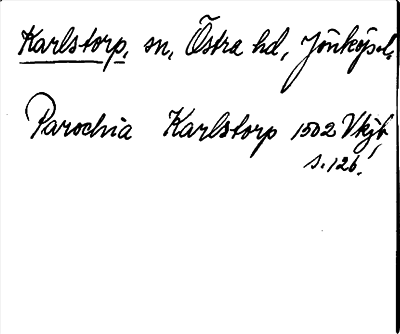 Karlstorp, sn, Östra hd, Jönköps l.
Parochia Karlstorp 1502 Vkjb
s. 126!